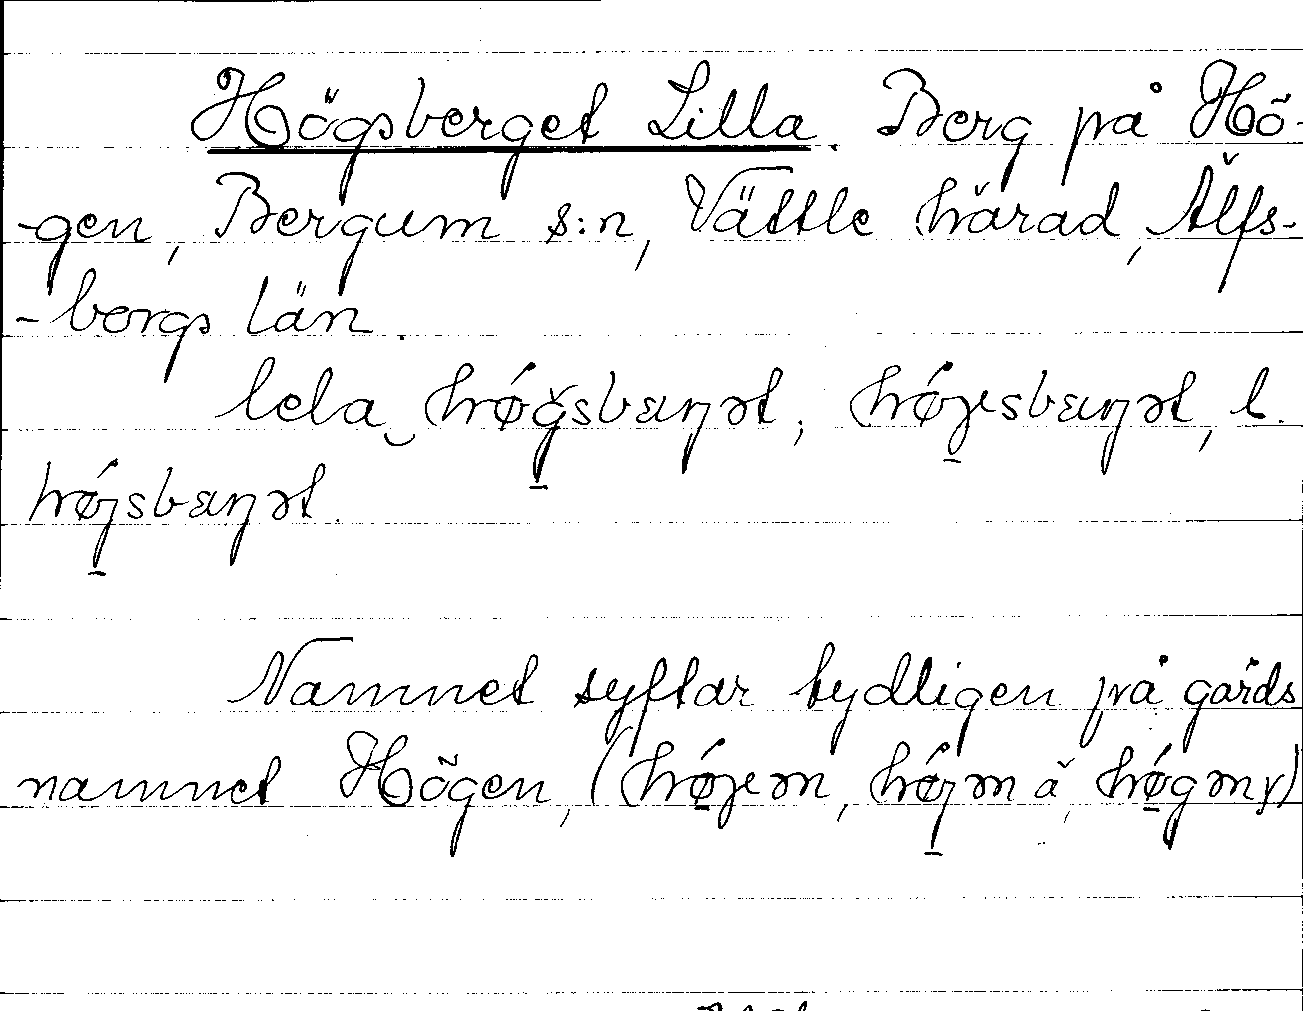 Högsberget Lilla. Berg på Hö-
-gen, Bergum s:n, Vättle härad, Älfs-
-borgs län.
lela hǿğsbæŋət, hǿjesbæŋət, l.
hǿjsbæŋət.
Namnet syftar tydligen på gårds
namnet Högen, (hǿjen, hǿjən å, hǿgən)